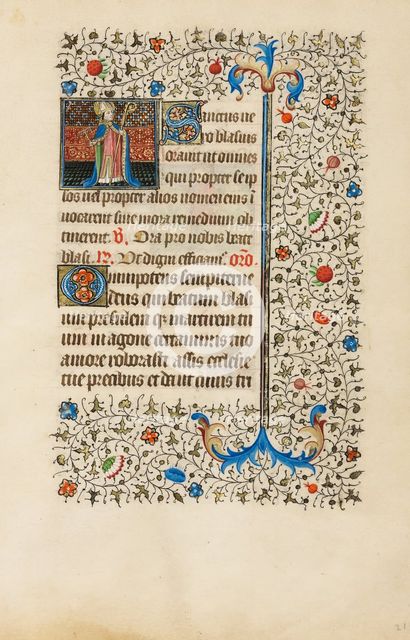 Sanctus ne
ro blasius
orauit ut omnes
qui propter se ip
sos uel propter alios nomen eius i
uocarent sine mora remedium ob
tinerent. V. Ora pro nobis beate
blasi. R. Ut digni efficiam. oro.
Omnipotens sempiterne
deus qui beatum blasi
um presulem et martirem tu
um in agone certaminis tuo
amore roborasti assis ecclesie
tue precibus et da ut cuius tri
21